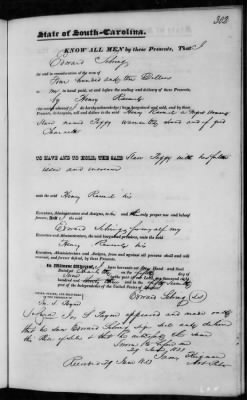 302
State of South-Carolina.
KNOW ALL MEN by these Presents, That I
Edward Sebring
for and in consideration of the sum of
Four hundred and fifty Dollars
to me in hand paid, at and before the sealing and delivery of these Presents,
by Henry Ravenel
(the receipt whereof I do hereby acknowledge) have bargained and sold, and by these
Presents, do bargain, sell and deliver to the said Henry Ravenel a Negro Woman
Slave named Peggy warranted sound and of good
Character
TO HAVE AND TO HOLD, THE SAID Slave Peggy with her future
issue and increase
unto the said Henry Ravenel his
Executors, Administrators and Assigns, to his and their only proper use and behoof,
forever. And I the said
Edward Sebring for my self my
Executors and Administrators, the said bargained premises, unto the said
Henry Ravenel his
Executors, Administrators and Assigns, from and against all persons shall and will warrant,
and forever defend, by these Presents.
In Witness Whereof, I have hereunto set my Hand and Seal
Dated at Charleston on the
in the year of our Lord one thousand eight
hundred and thirty three and in the fifty seventh
year of the Independence of the United States of America.
SIGNED, SEALED, AND DELIVERED
IN THE PRESENCE OF
Edward Sebring (LS)
appeared and made oath
that he saw Edward Sebring sign seal and deliver
the within and that he witnessed the same
Sworn to before me
29 June 1833
Recorded 29 June 1833